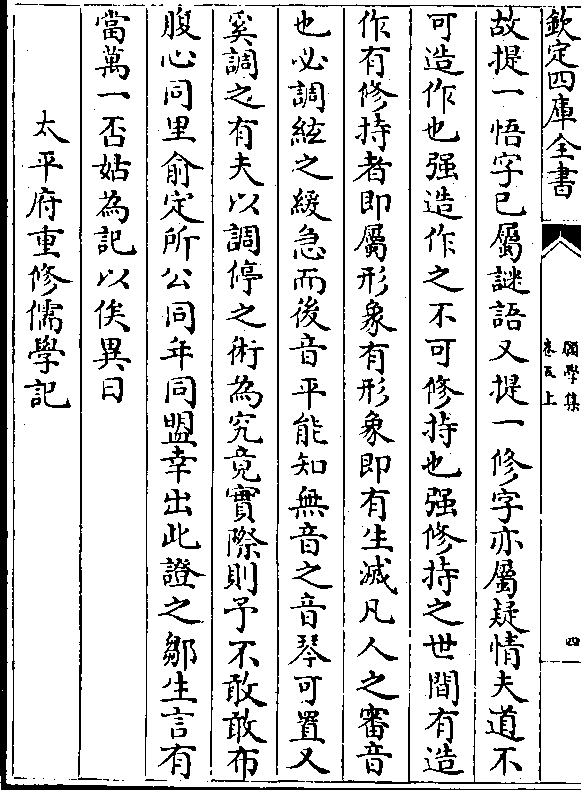 欽定四庫全書
願學集
卷五上
四
故提一悟字已屬謎語又提一修字亦屬疑情夫道不
可造作也强造作之不可修持也强修持之世間有造
作有修持者即屬形象有形象即有生滅凡人之審音
也必調絃之緩急而後音平能知無音之音琴可置又
奚調之有夫以調停之術為究竟實際則予不敢敢布
腹心同里俞定所公同年同盟幸出此證之鄒生言有
當萬一否姑為記以俟異日
太平府重修儒學記